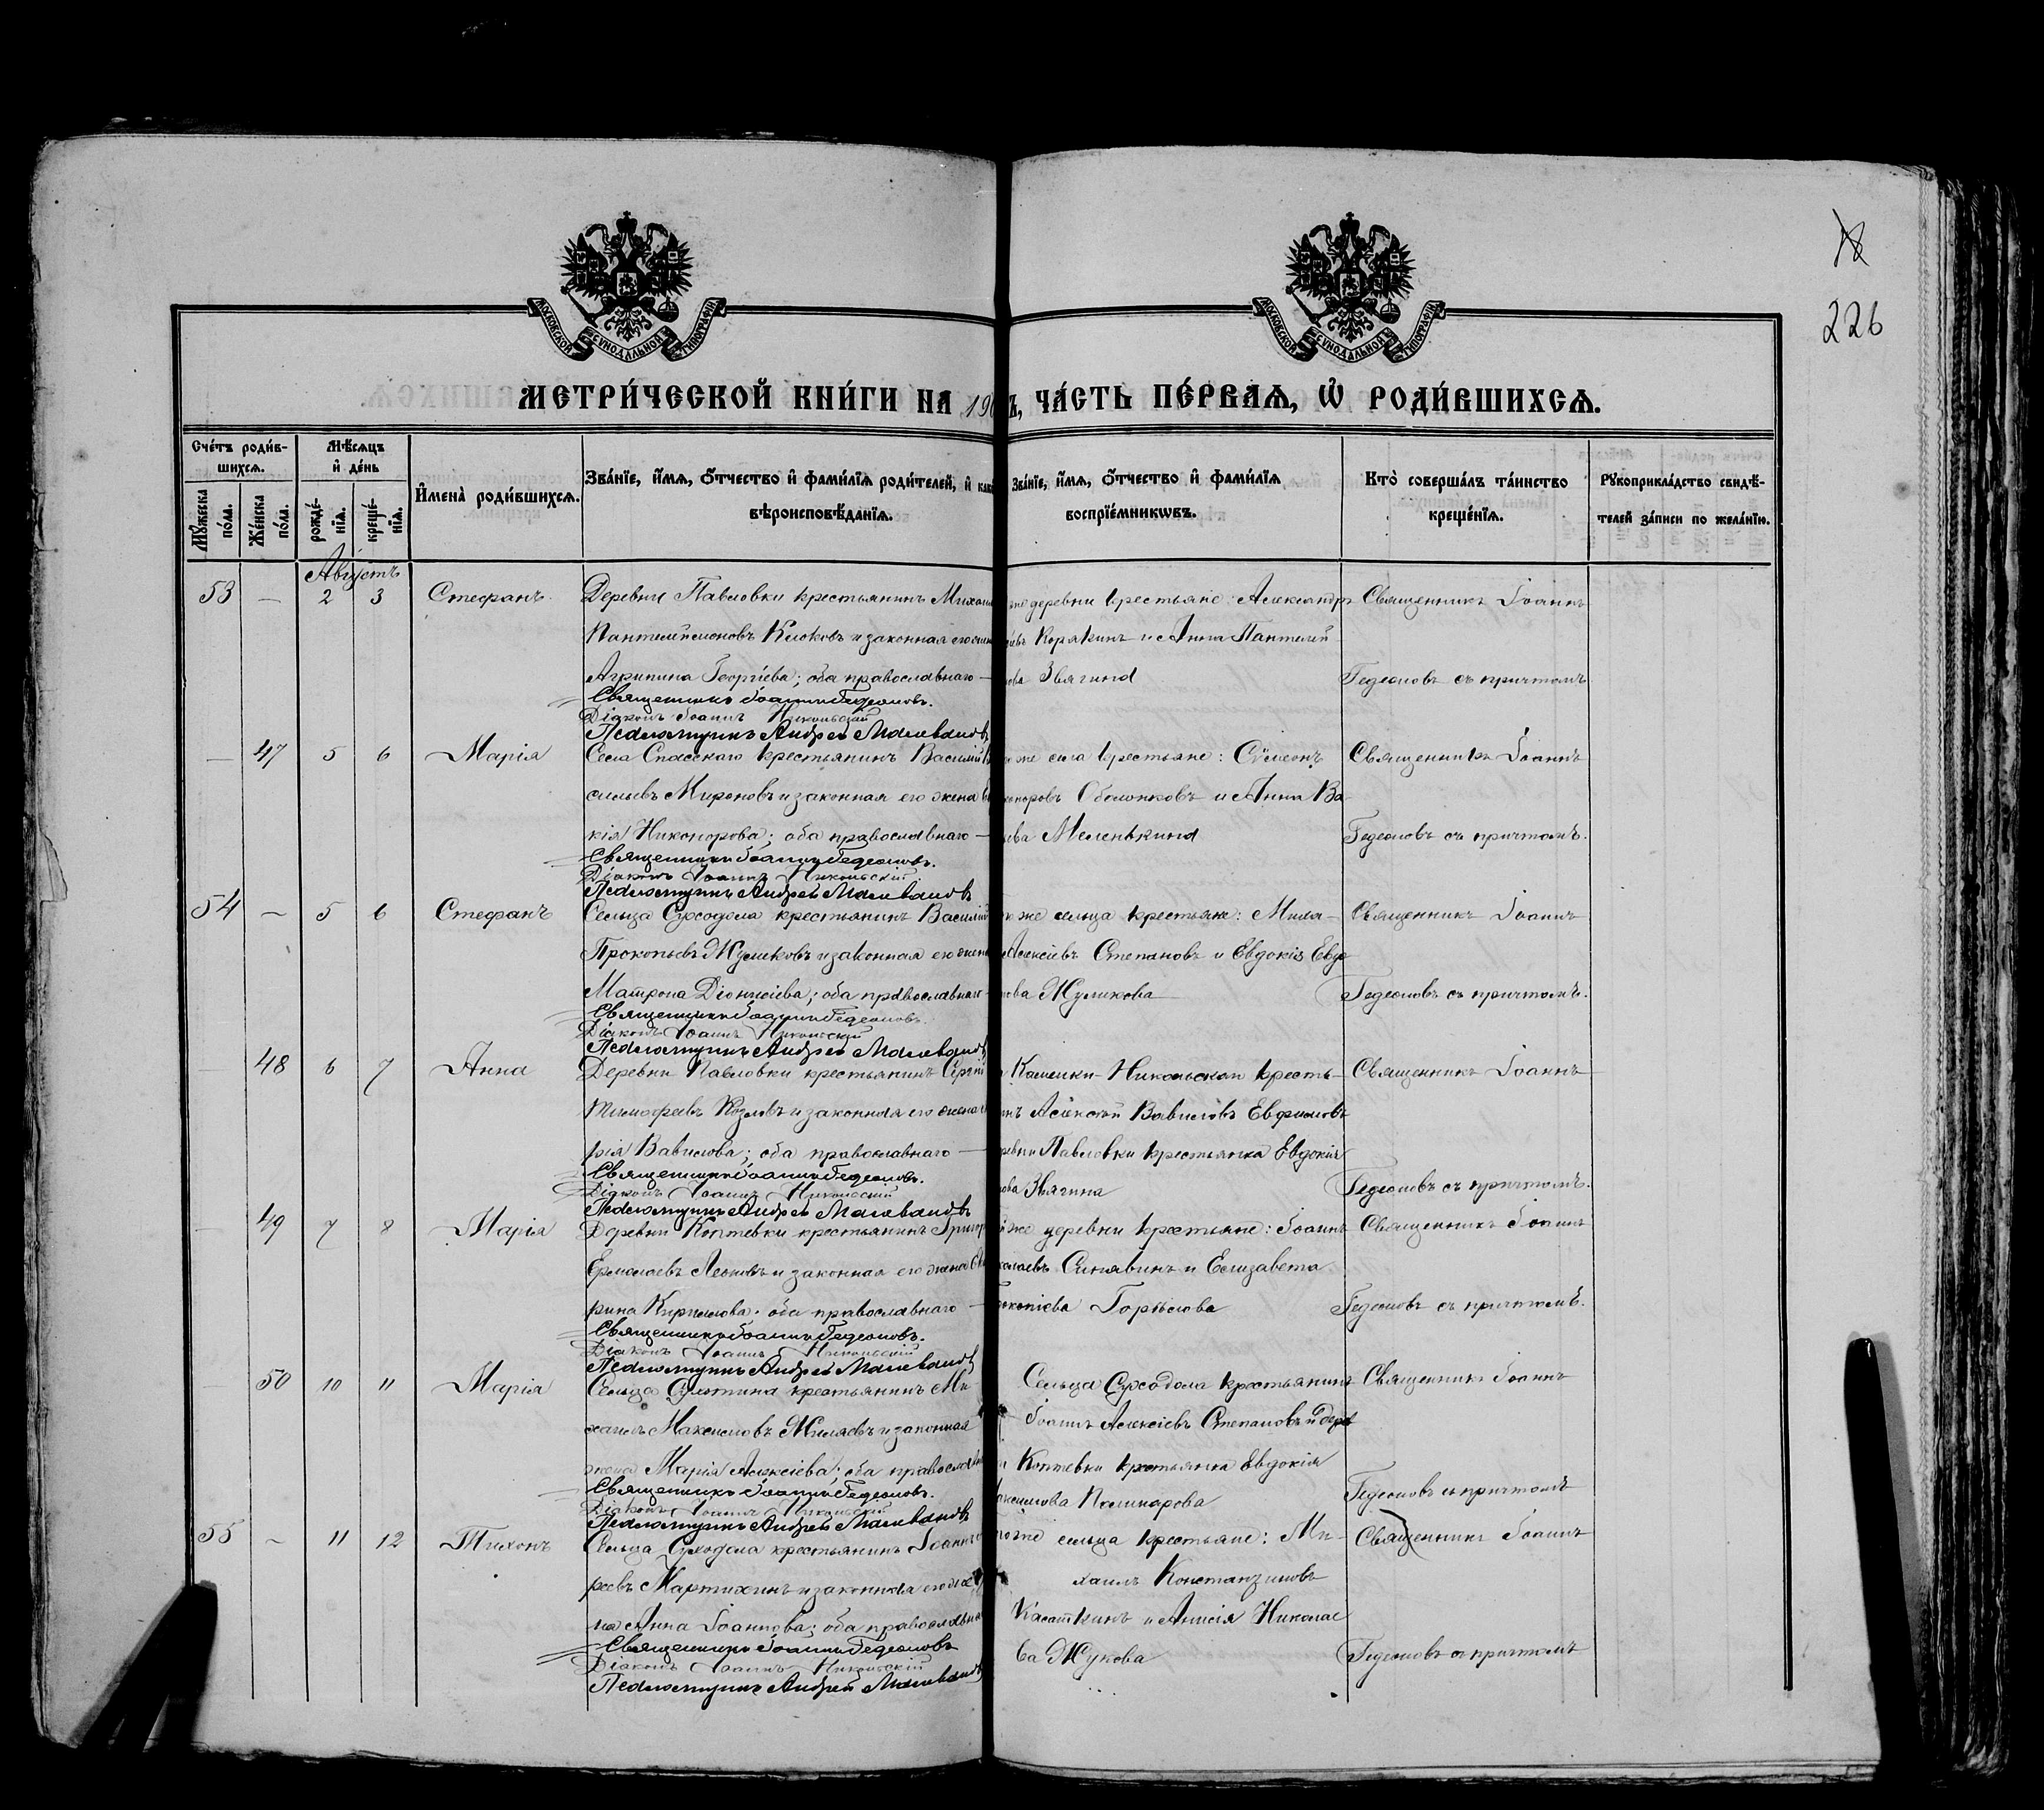 226
МОСКОВСКОЙ СУНОДАЛЬНОЙ ТИПОГРАФІИ
МОСКОВСКОЙ СУНОДАЛЬНОЙ ТИПОГРАФІИ
МЕТРИ́ЧЕСКОЙ КНИ́ГИ НА 190
Ъ, ЧА́СТЬ ПЕ́РВАѦ, Ѽ РОДИ́ВШИХСѦ.
Сче́тъ роди́в-
шихсѧ.
Мѣ́сѧцъ
и҆ де́нь
Мꙋ́жеска по́ла.
Же́нска по́ла.
рожде́-нїѧ.
креще́-нїѧ.
И҆мена̀ роди́вшихсѧ.
Зва́нїе, и҆́мѧ, ѻ҆́тчество и҆ фами́лїѧ роди́телей, и҆ как
вѣроисповѣ́данїѧ.
Зва́нїе, и҆́мѧ, ѻ҆́тчество и҆ фами́лїѧ
воспрїе́мникѡвъ.
Кто̀ соверша́лъ та́инство
креще́нїѧ.
Рꙋкоприкла́дство свидѣ́-
телей за́писи по жела́нїю.
Августъ
53 — 2 3 Стефанъ
Деревни Павловки крестьянинъ Михаил
Пантелеймоновъ Клоковъ и законная его жена
Агрипина Георгіева; оба православнаго —
Священникъ Іоаннъ Гедеоновъ.
Діаконъ Іоаннъ Никольскій
Псаломщикъ Андрей Малевановъ
же деревни крестьяне: Александръ
евъ Корякинъ и Анна Пантелей
нова Звягина
Священникъ Іоаннъ
Гедеоновъ съ причтомъ
— 47 5 6 Марія
Села Спасскаго крестьянинъ Василій Ва
сильевъ Мироновъ и законная его жена Ев
кія Никонорова; оба православнаго —
Священникъ Іоаннъ Гедеоновъ.
Діаконъ Іоаннъ Никольскій
Псаломщикъ Андрей Малевановъ
же села крестьяне: Сѵмеонъ
коноровъ Оболонковъ и Анна Ва
ева Меленькина
Священникъ Іоаннъ
Гедеоновъ съ причтомъ.
54 — 5 6 Стефанъ
Сельца Суходола крестьянинъ Василій
Прокопьевъ Жуликовъ и законная его жена
Матрона Діонисіева; оба православнаго
Священникъ Іоаннъ Гедеоновъ.
Діаконъ Іоаннъ Никольскій
Псаломщикъ Андрей Малевановъ
же сельца крестьяне: Миха-
Алексіевъ Степановъ и Евдокія Евдо
мова Жуликова
Священникъ Іоаннъ
Гедеоновъ съ причтомъ.
— 48 6 7 Анна
Деревни Павловки крестьянинъ Сергій
Тимофеевъ Козловъ и законная его жена
рія Вавилова; оба православнаго —
Священникъ Іоаннъ Гедеоновъ.
Діаконъ Іоаннъ Никольскій
Псаломщикъ Андрей Малевановъ
Никольскаго кресть-
нъ Алексѣй Вавиловъ Евфимовъ
ревни Павловки крестьянка Евдокія
ова Звягина
Священникъ Іоаннъ
Гедеоновъ съ причтомъ.
— 49 7 8 Марія
Деревни Коптевки крестьянинъ Григор
Ермолаевъ Леоновъ и законная его жена
рина Кириллова; оба православнаго —
Священникъ Іоаннъ Гедеоновъ.
Діаконъ Іоаннъ Никольскій
Псаломщикъ Андрей Малевановъ
же деревни крестьяне: Іоаннъ
колаевъ Синявинъ и Елизавета
окопіева Горѣлова
Священникъ Іоаннъ
Гедеоновъ съ причтомъ.
— 50 10 11 Марія
Сельца крестьянинъ Ми
хаилъ Максимовъ Миляевъ и законная
жена Марія Алексіева; оба православн
Священникъ Іоаннъ Гедеоновъ.
Діаконъ Іоаннъ Никольскій
Псаломщикъ Андрей Малевановъ
Сельца Суходола крестьянинъ
Іоаннъ Алексіевъ Степановъ и дерев
Коптевки крестьянка Евдокія
аксимова
Священникъ Іоаннъ
Гедеоновъ съ причтомъ
55 — 11 12 Тихонъ
Сельца Суходола крестьянинъ Іоаннъ
реевъ Мартихинъ и законная его же
на Анна Іоаннова; оба православна
Священникъ Іоаннъ Гедеоновъ
Діаконъ Іоаннъ Никольскій
Псаломщикъ Андрей Малевановъ
гоже сельца крестьяне: Ми-
хаилъ Константиновъ
Касаткинъ и Анисія Николае
ва Жукова
Священникъ Іоаннъ
Гедеоновъ съ причтомъ